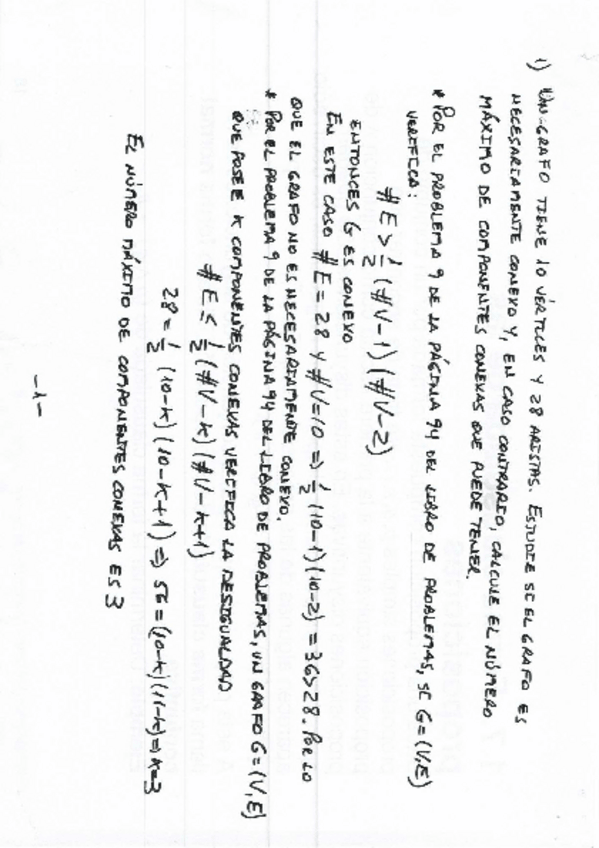 1) UN GRAFO TIENE 10 VÉRTICES Y 28 ARISTAS. ESTUDIE SI EL GRAFO ES
NECESARIAMENTE CONEXO Y, EN CASO CONTRARIO, CALCULE EL NÚMERO
MÁXIMO DE COMPONENTES CONEXAS QUE PUEDE TENER.
* POR EL PROBLEMA 9 DE LA PÁGINA 94 DEL LIBRO DE PROBLEMAS, SI G=(V,E)
VERIFICA:
#E > 1/2 (#V-1)(#V-2)
ENTONCES G ES CONEXO
EN ESTE CASO #E = 28 Y #V=10 => 1/2 (10-1)(10-2) = 36>28. POR LO
QUE EL GRAFO NO ES NECESARIAMENTE CONEXO.
* POR EL PROBLEMA 9 DE LA PÁGINA 94 DEL LIBRO DE PROBLEMAS, UN GRAFO G=(V,E)
QUE POSEE K COMPONENTES CONEXAS VERIFICA LA DESIGUALDAD
#E ≤ 1/2 (#V-K)(#V-K+1)
28 = 1/2 (10-K)(10-K+1) => 56 = (10-K)(11-K) => K=3
EL NÚMERO MÁXIMO DE COMPONENTES CONEXAS ES 3
-1-